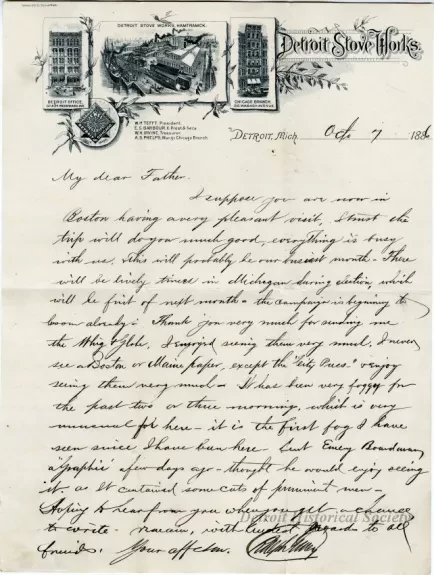 DETROIT STOVE WORKS, HAMTRAMCK.
Detroit Stove Works.
DETROIT OFFICE,
CHICAGE BRANCH,
W.H. TEFFT, President.
E.S. BARBOUR, V. Presd & Secy.
W.H. IRVINE, Treasurer.
A.G. PHELPS, Mangr. Chicago Branch.
DETROIT, Mich. Oct 7 188
My dear Father.
I suppose you are now in
Boston having a very pleasant visit, I trust the
trip will do you much good, everything is busy
with us, & this will probably be our busiest month - There
will be lively times in Michigan during election, which
will be first of next month - the campaign is begining to
boom already. Thank you very much for sending me
the Whig & Globe, I enjoyed seeing them very much, I never
see a Boston or Maine paper, except the "City Press" & enjoy
seeing them very much - It has been very foggy for
the past two or three morning, which is very
unusual for here - it is the first fog I have
seen since I have been here Sent Emery Boardman
a "Graphic" a few days ago - thought he would enjoy seeing
it, as it contained some cuts of prominent men -
Hoping to hear from you when you get a chance
to write - remain, with kindest regards to all
friends. Your affectn.
Detroit Historical Society